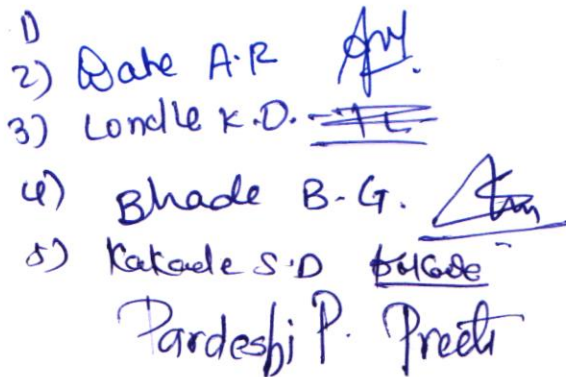 1)
2) Date A.R
3) Londhe K.D.
4) Bhade B.G.
5) Kakade S.D
Pardeshi P. Preeti